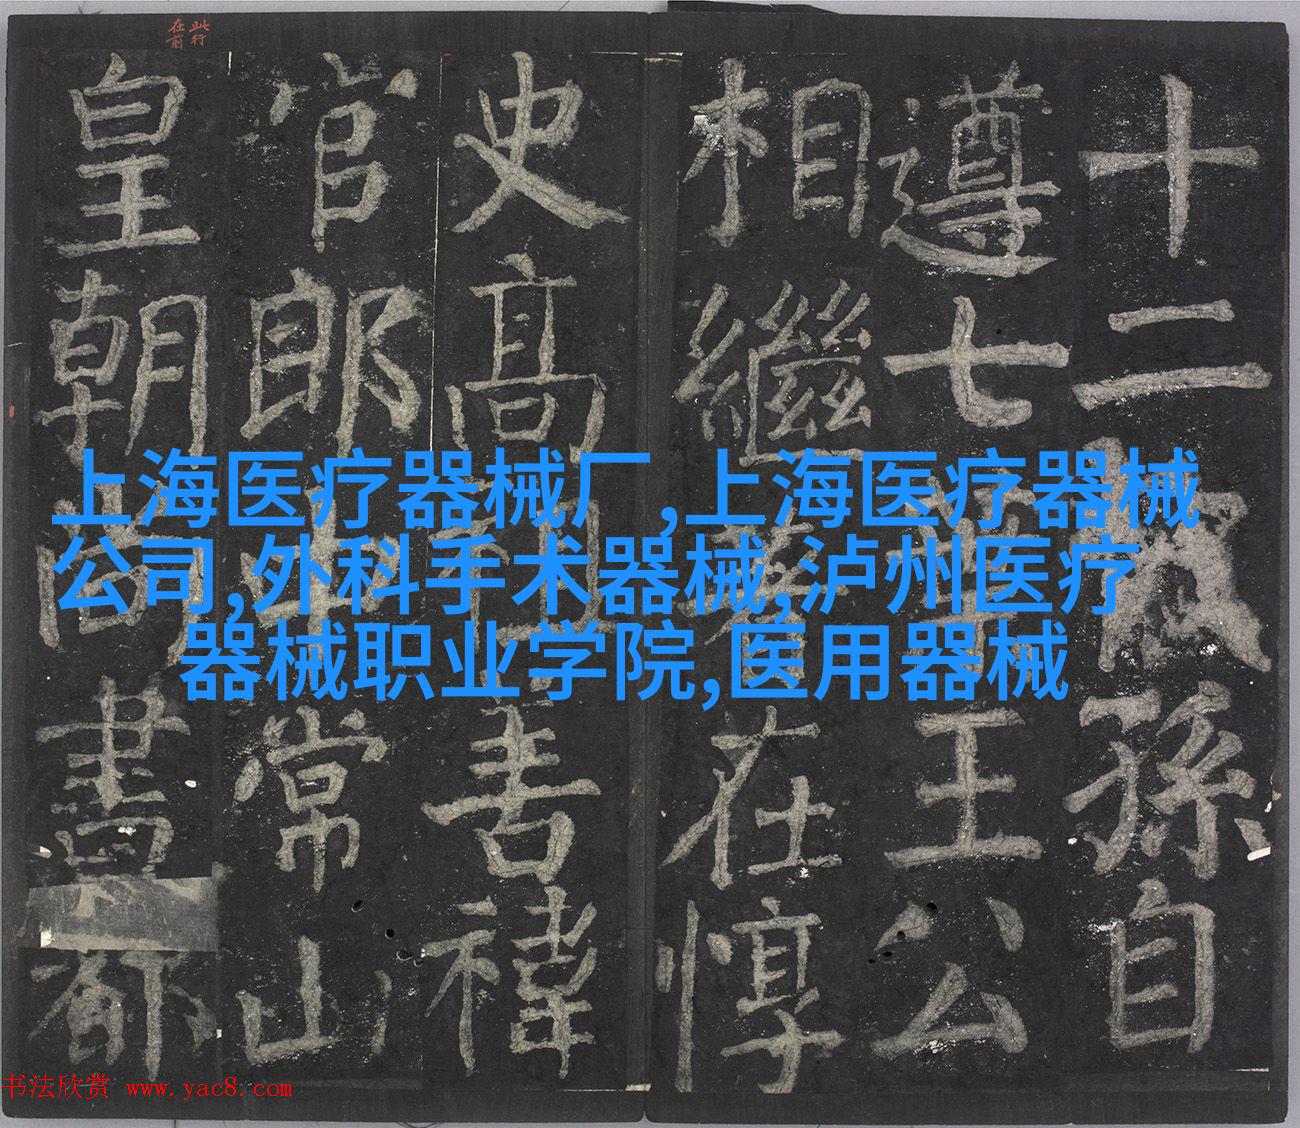 此行
在前
十二孫自
遵七王公
相繼在惇
史高善禕
官郎中常山
皇朝尚書都
上海医疗器械厂,上海医疗器械
公司,外科手术器械,泸州医疗
器械职业学院,医用器械
书法欣赏 www.yac8.com